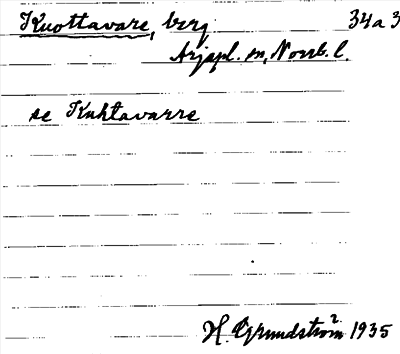 Kuottavare, berg 34a3
Arjepl. sn, Norrb. l.
se Kuhtavarre
H. Grundström 1935